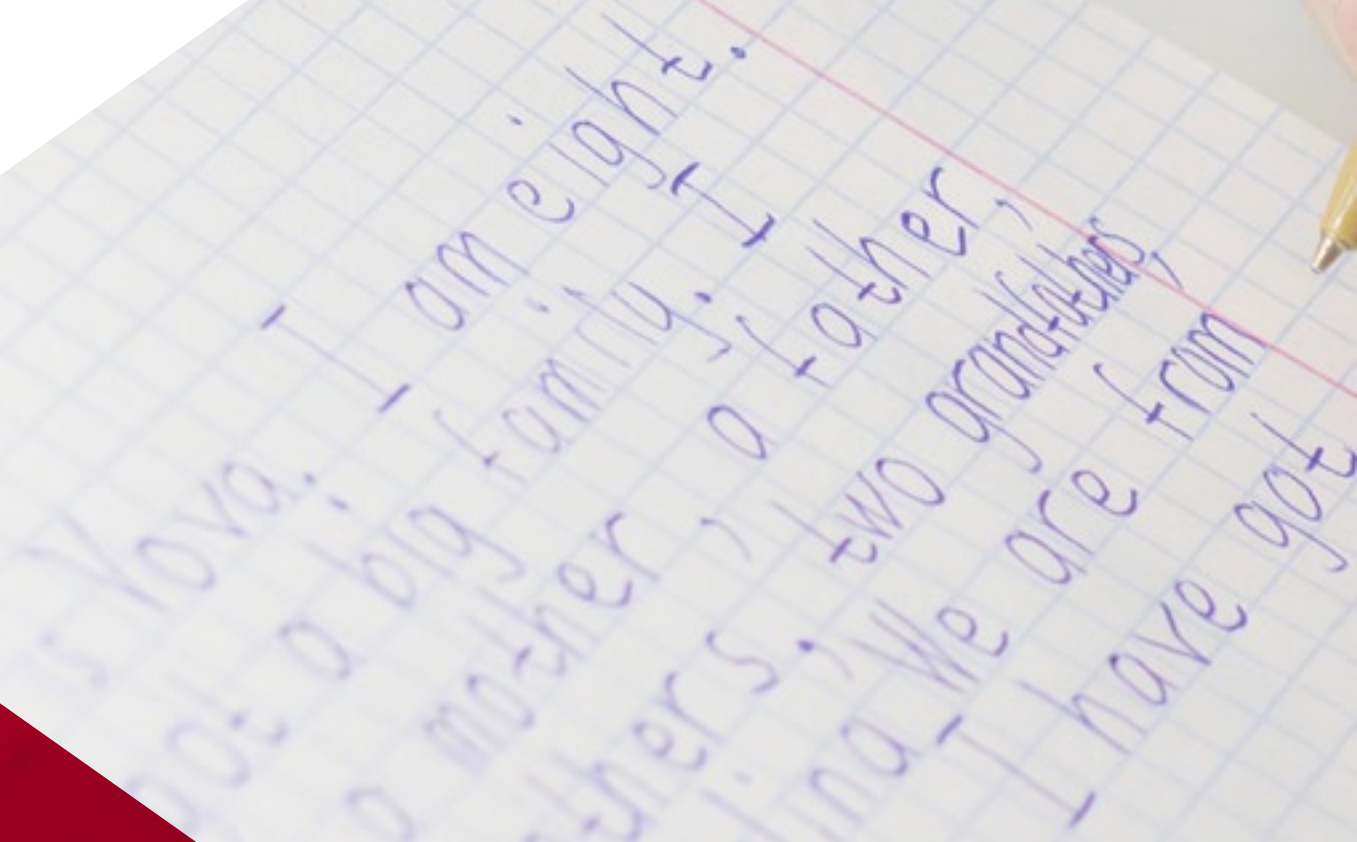 s Vova. I am eight.
got a big family. I
a mother, a father,
thers, two grandfathers,
ina. We are from
I have got